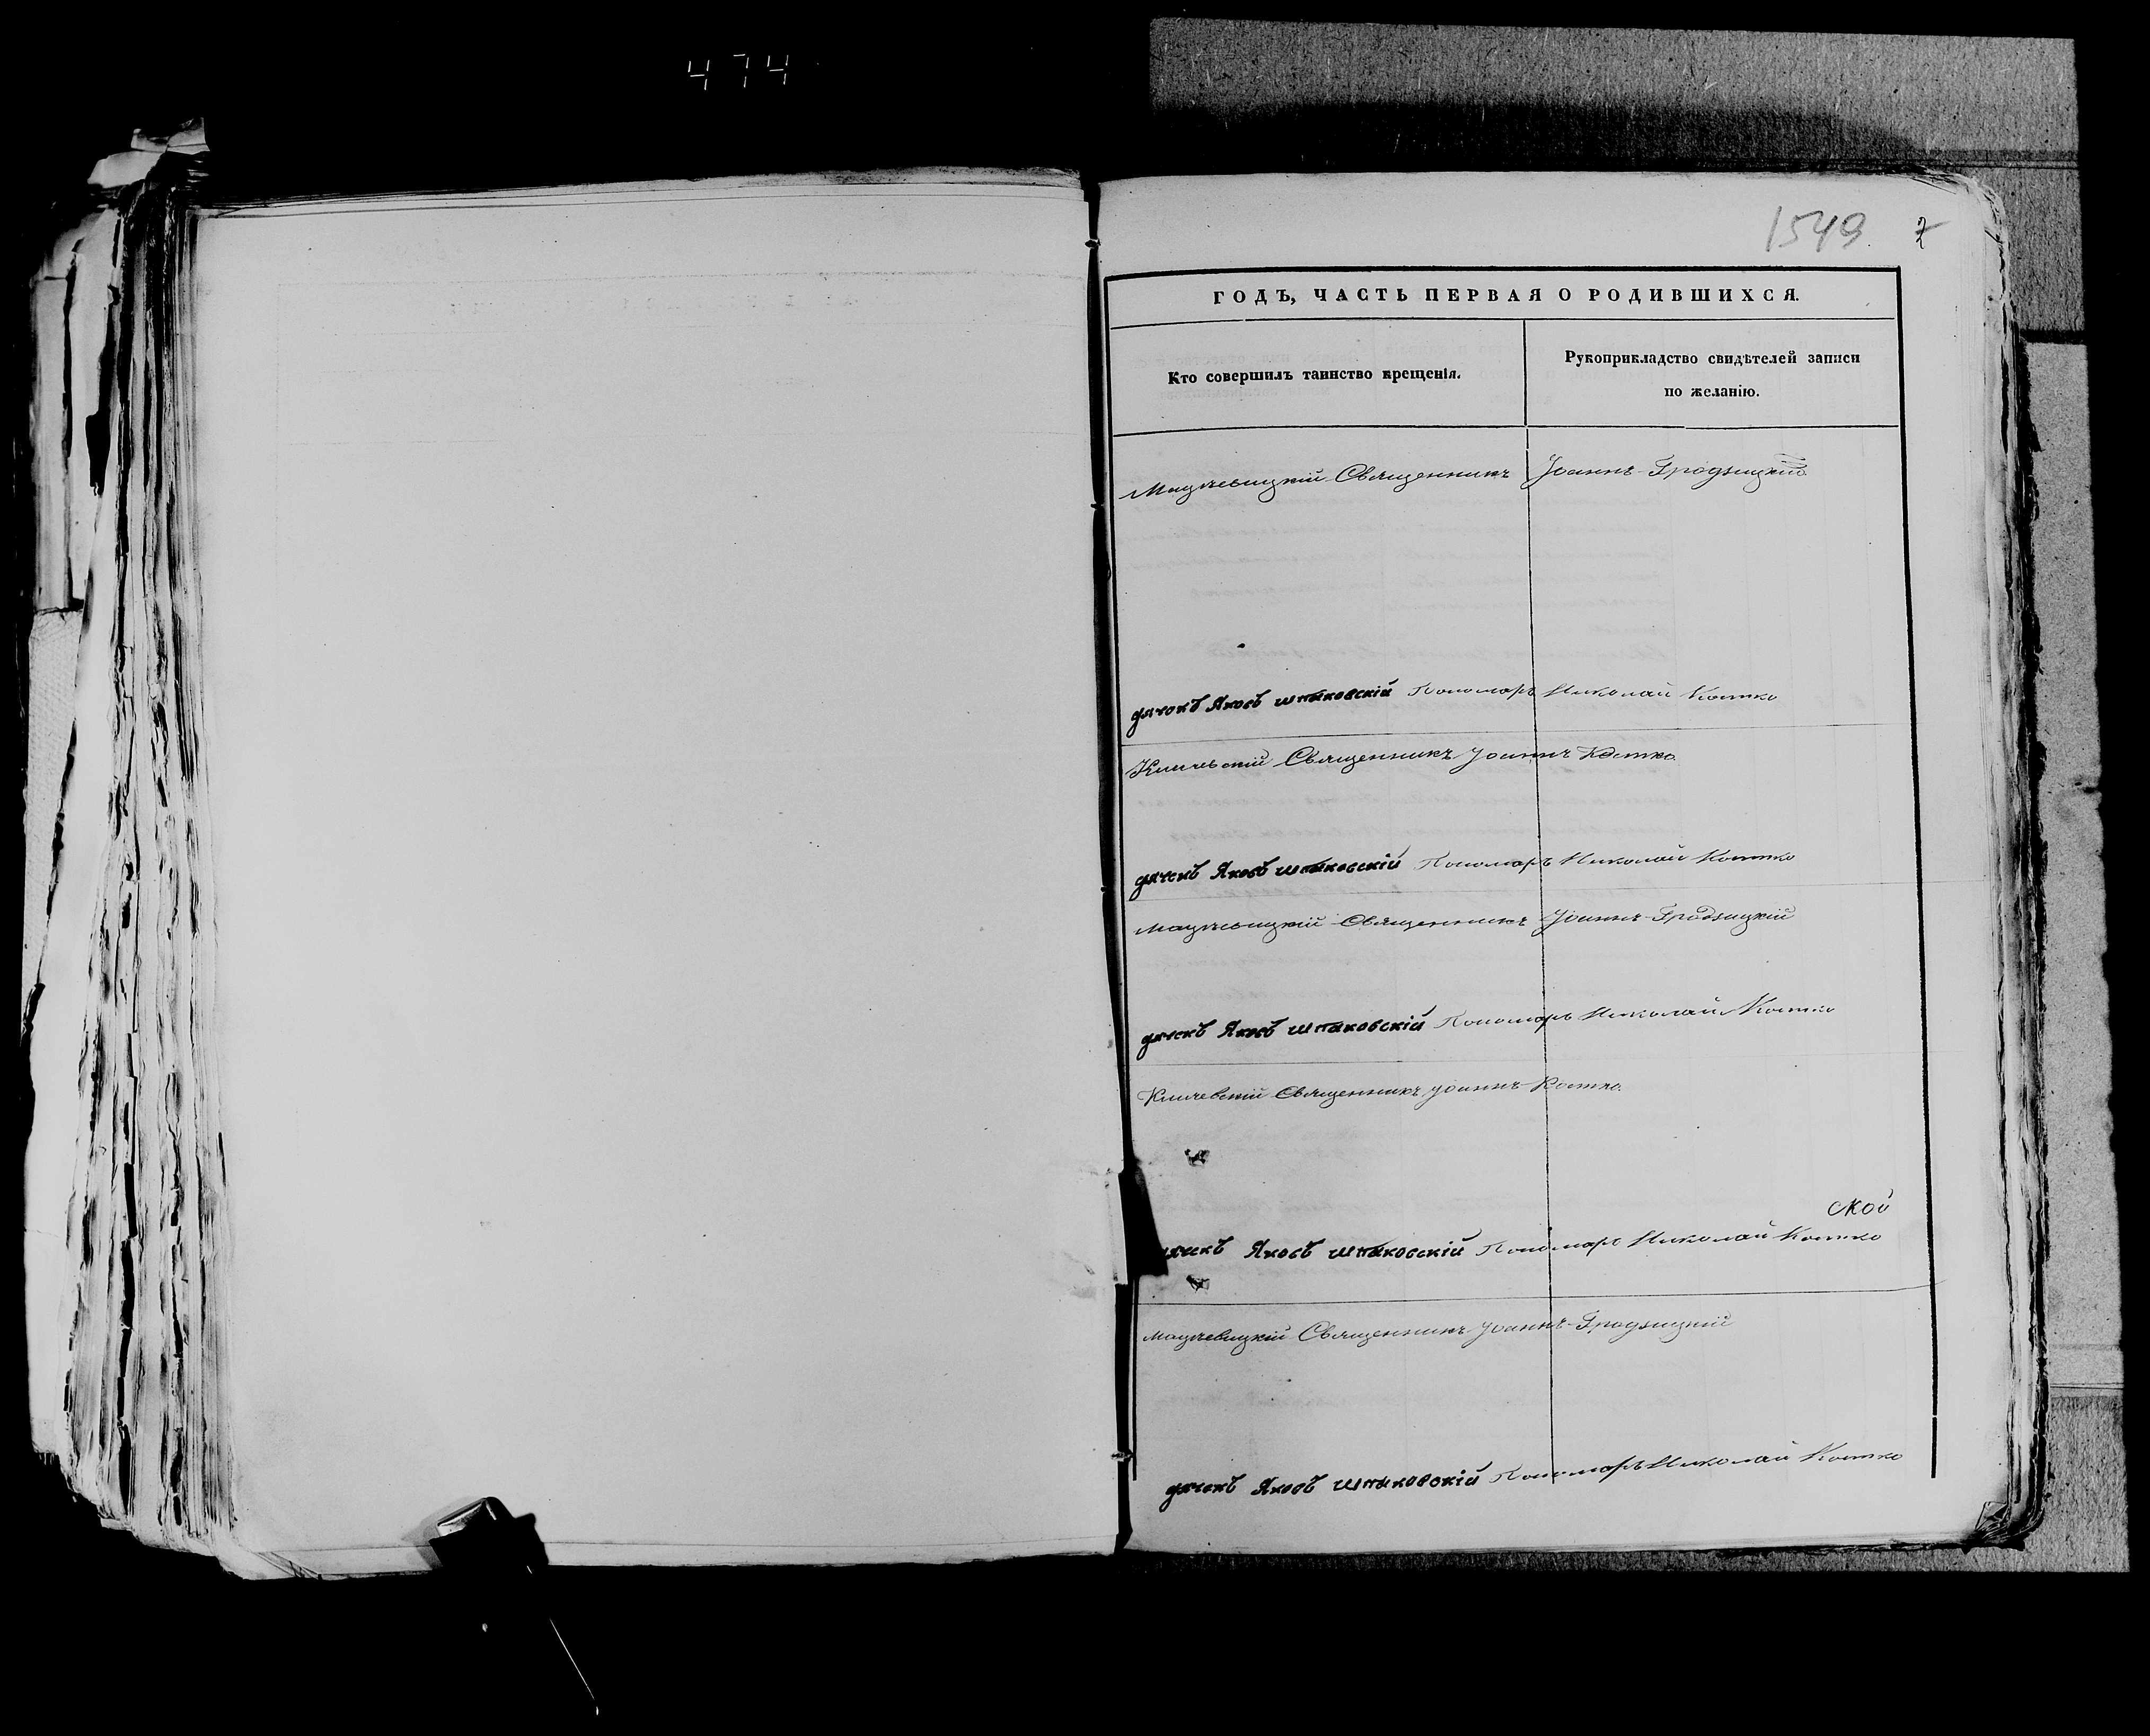 474
1549 2
ГОДЪ, ЧАСТЬ ПЕРВАЯ О РОДИВШИХСЯ.
Кто совершилъ таинство крещенія.
Рукоприкладство свидѣтелей записи
по желанію.
Мацевицкій Священникъ Іоаннъ Гродзицкій
дячокъ Яковъ Шпаковскій Пономарь Николай Костко
Кличевскій Священникъ Іоаннъ Костко
дячекъ Яковъ Шпаковскій Пономарь Николай Костко
Мацевицкій Священникъ Іоаннъ Гродзицкій
дячекъ Яковъ Шпаковскій Пономарь Николай Костко
Кличевскій Священникъ Іоаннъ Костко.
ской
дячекъ Яковъ Шпаковскій Пономарь Николай Костко
Мацевицкій Священникъ Іоаннъ Гродзицкій
дячекъ Яковъ Шпаковскій Пономарь Николай Костко